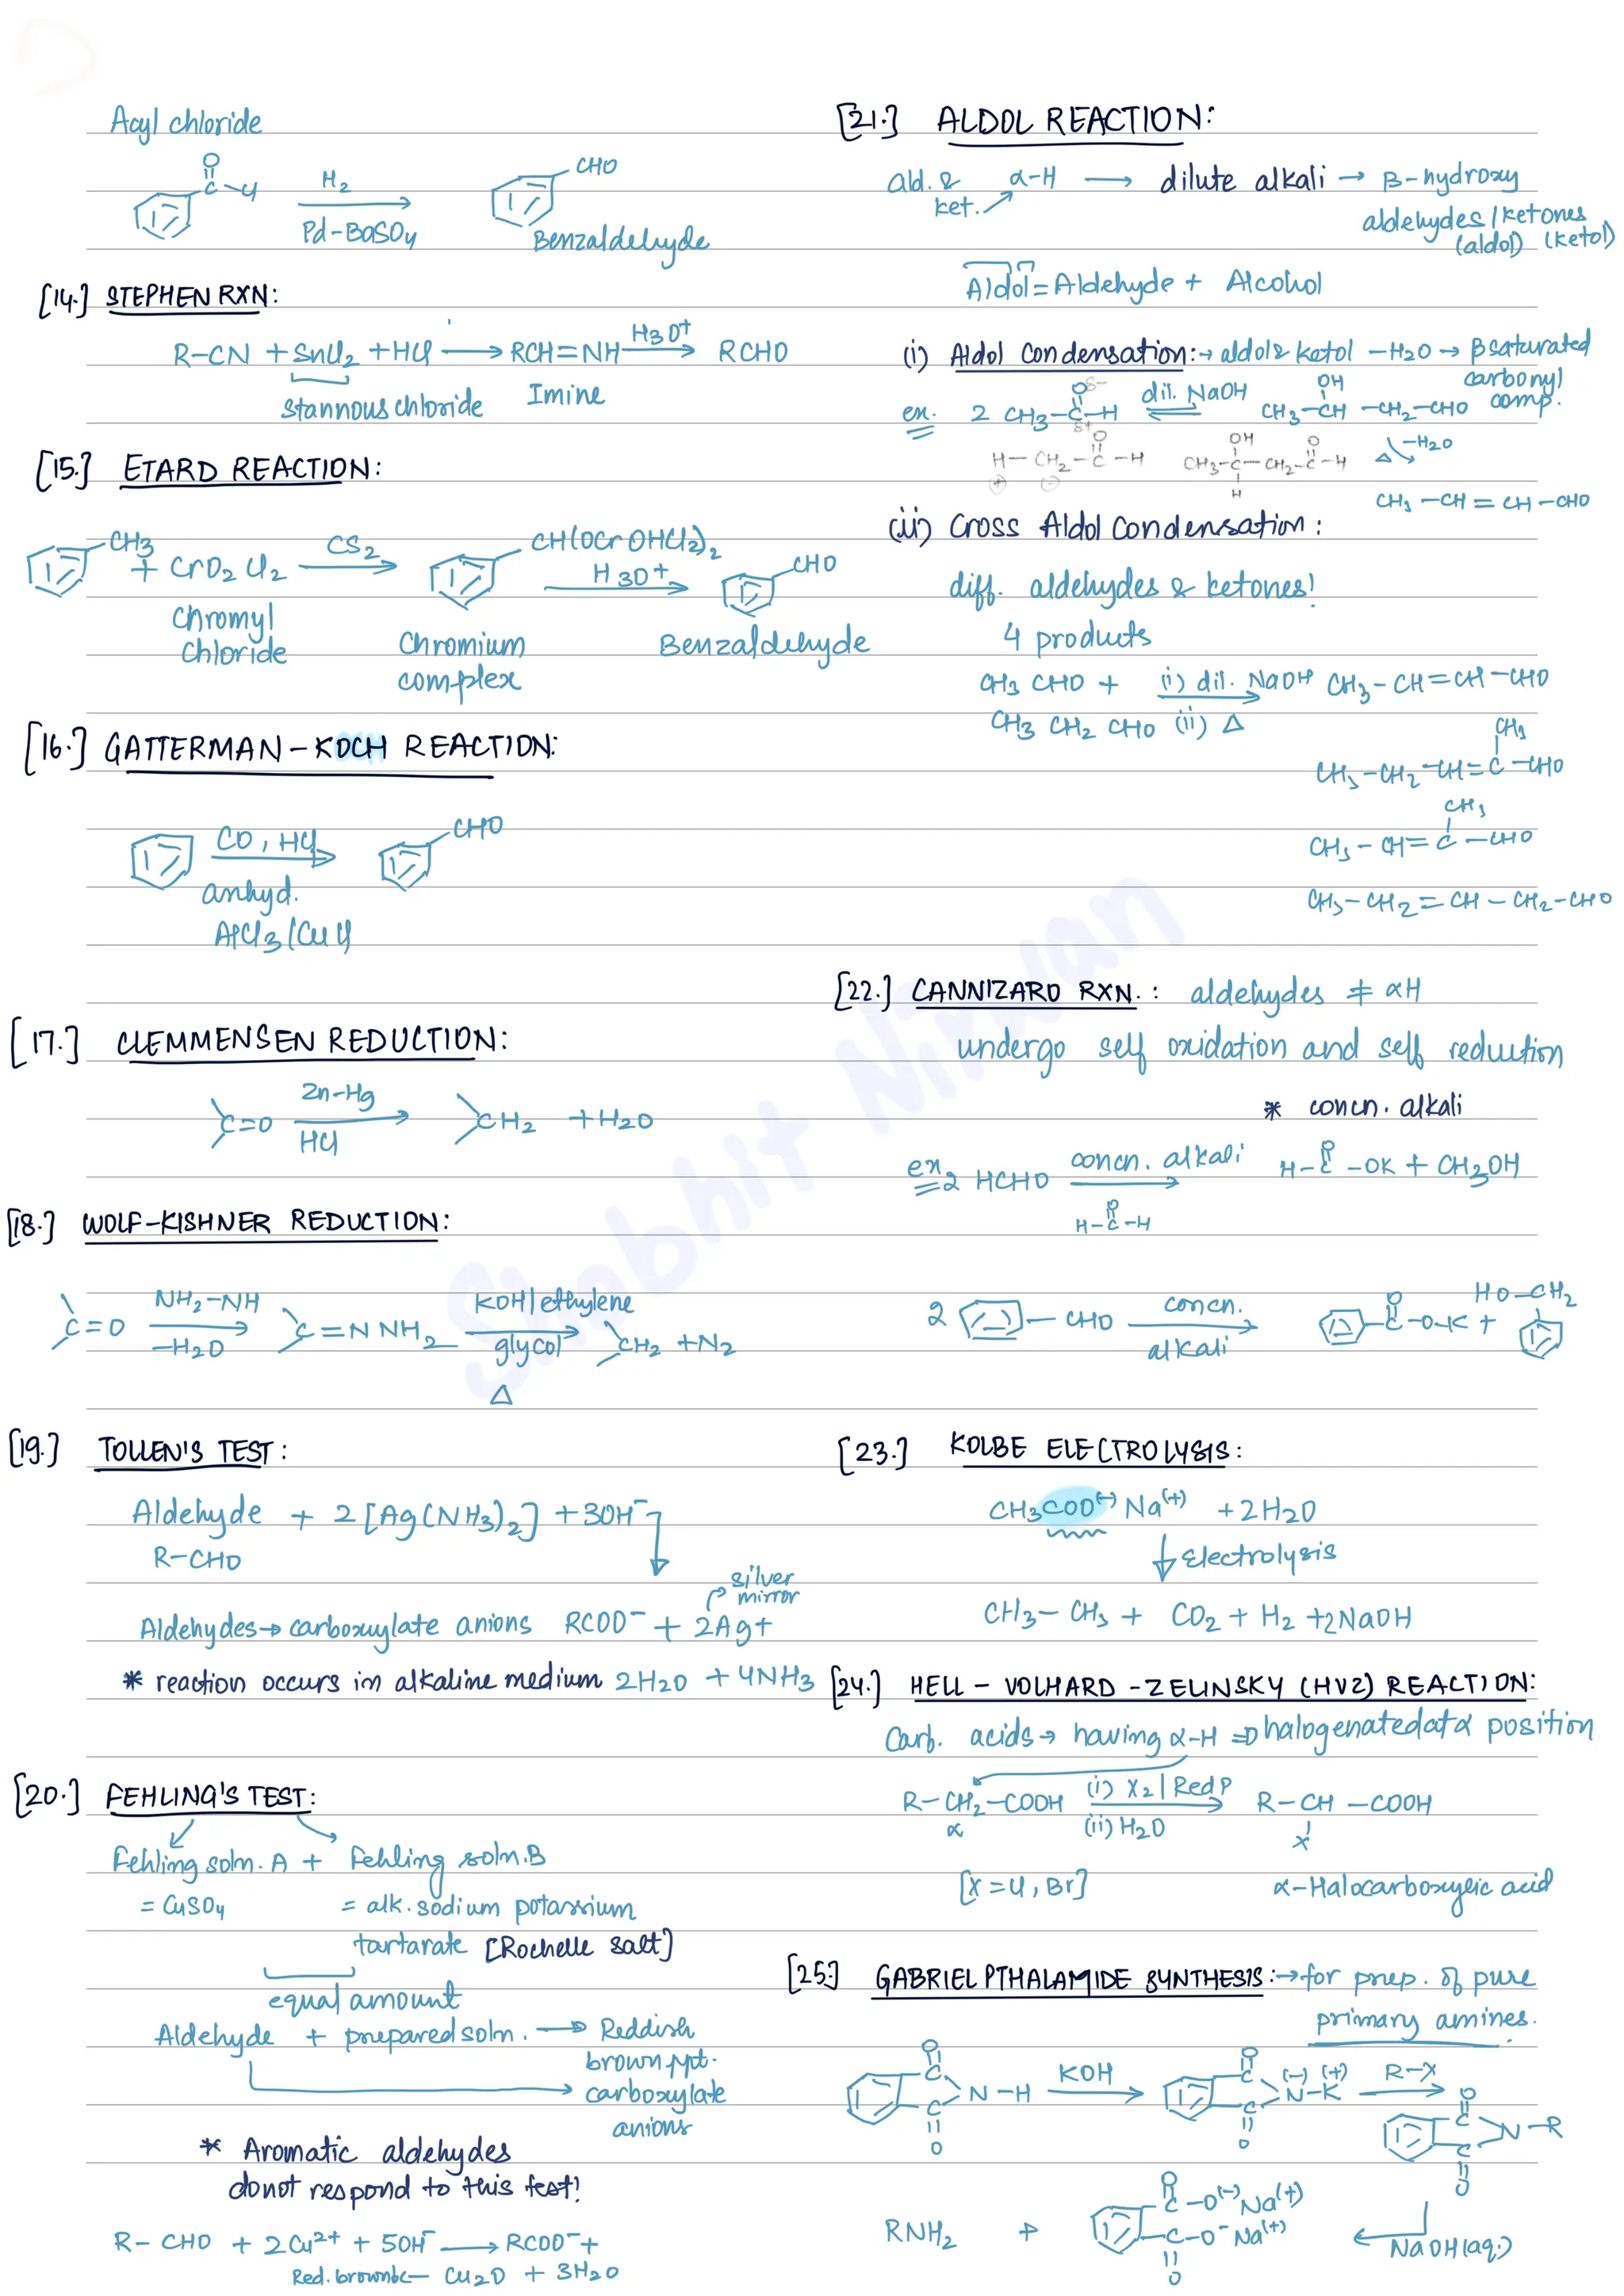 Acyl chloride
O
C-Cl
H2
Pd-BaSO4
CHO
Benzaldehyde
[14.] STEPHEN RXN:
R-CN + SnCl2 + HCl → RCH=NH H3O+ → RCHO
Stannous chloride Imine
[15.] ETARD REACTION:
CH3 + CrO2Cl2 CS2 → CH(OCrOHCl2)2 H3O+ → CHO
Chromyl chloride
Chromium complex
Benzaldehyde
[16.] GATTERMAN-KOCH REACTION:
CO, HCl → CHO
anhyd.
AlCl3/CuCl
[17.] CLEMMENSEN REDUCTION:
C=O Zn-Hg → CH2 + H2O
HCl
[18.] WOLF-KISHNER REDUCTION:
C=O NH2-NH → C=NNH2 KOH/ethylene → CH2 + N2
-H2O glycol
Δ
[19.] TOLLEN'S TEST:
Aldehyde + 2[Ag(NH3)2] + 3OH-
R-CHO
silver mirror
Aldehydes → carboxylate anions RCOO- + 2Ag+
* reaction occurs in alkaline medium 2H2O + 4NH3
[20.] FEHLING'S TEST:
Fehling soln. A + Fehling soln. B
= CuSO4 = alk. sodium potassium
tartarate [Rochelle salt]
equal amount
Aldehyde + prepared soln. → Reddish
brown ppt.
carboxylate
anions
* Aromatic aldehydes
donot respond to this test!
R-CHO + 2Cu2+ + 5OH- → RCOO- +
Cu2O + 3H2O
[21.] ALDOL REACTION:
ald. & ket. α-H → dilute alkali → β-hydroxy
aldehydes/ketones
(aldol) (ketol)
Aldol = Aldehyde + Alcohol
(i) Aldol Condensation: → aldol & ketol -H2O → β saturated
carbonyl comp.
ex. 2 CH3-C-H dil. NaOH ⇌ CH3-CH-CH2-CHO
O δ- δ+ OH
H-CH2-C-H CH3-C-CH2-C-H Δ -H2O
CH3-CH=CH-CHO
(ii) Cross Aldol Condensation:
diff. aldehydes & ketones!
4 products
CH3CHO + (i) dil. NaOH → CH3-CH=CH-CHO
CH3CH2CHO (ii) Δ
CH3
CH3-CH2-CH=C-CHO
CH3
CH3-CH=C-CHO
CH3-CH2=CH-CH2-CHO
[22.] CANNIZARO RXN.: aldehydes ≠ αH
undergo self oxidation and self reduction
* concn. alkali
ex 2 HCHO concn. alkali → H-C-OK + CH3OH
O
H-C-H
2 CHO concn. alkali → C-O-K + HO-CH2
[23.] KOLBE ELECTROLYSIS:
CH3COO(-)Na(+) + 2H2O
↓ Electrolysis
CH3-CH3 + CO2 + H2 + 2NaOH
[24.] HELL-VOLHARD-ZELINSKY (HVZ) REACTION:
Carb. acids → having α-H ⇒ halogenated at α position
R-CH2-COOH (i) X2/Red P → R-CH-COOH
α (ii) H2O X
[X = Cl, Br] α-Halocarboxylic acid
[25.] GABRIEL PTHALAMIDE SYNTHESIS: → for prep. of pure
primary amines.
O C N-H KOH → O C N-K (-) (+) R-X →
O C N-R
RNH2 + C-O(-)Na(+)
C-O-Na(+)
NaOH(aq.)
Shobhit Nirwan